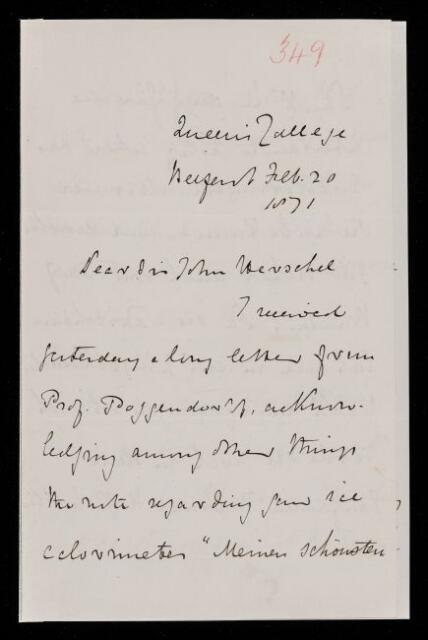 349
Queen's College
Belfast Feb. 20
1871
Dear Sir John Herschel
I received
yesterday a long letter from
Prof. Poggendorff, acknow-
ledging among other things
the note regarding your ice
calorimeter "Meinen schönsten